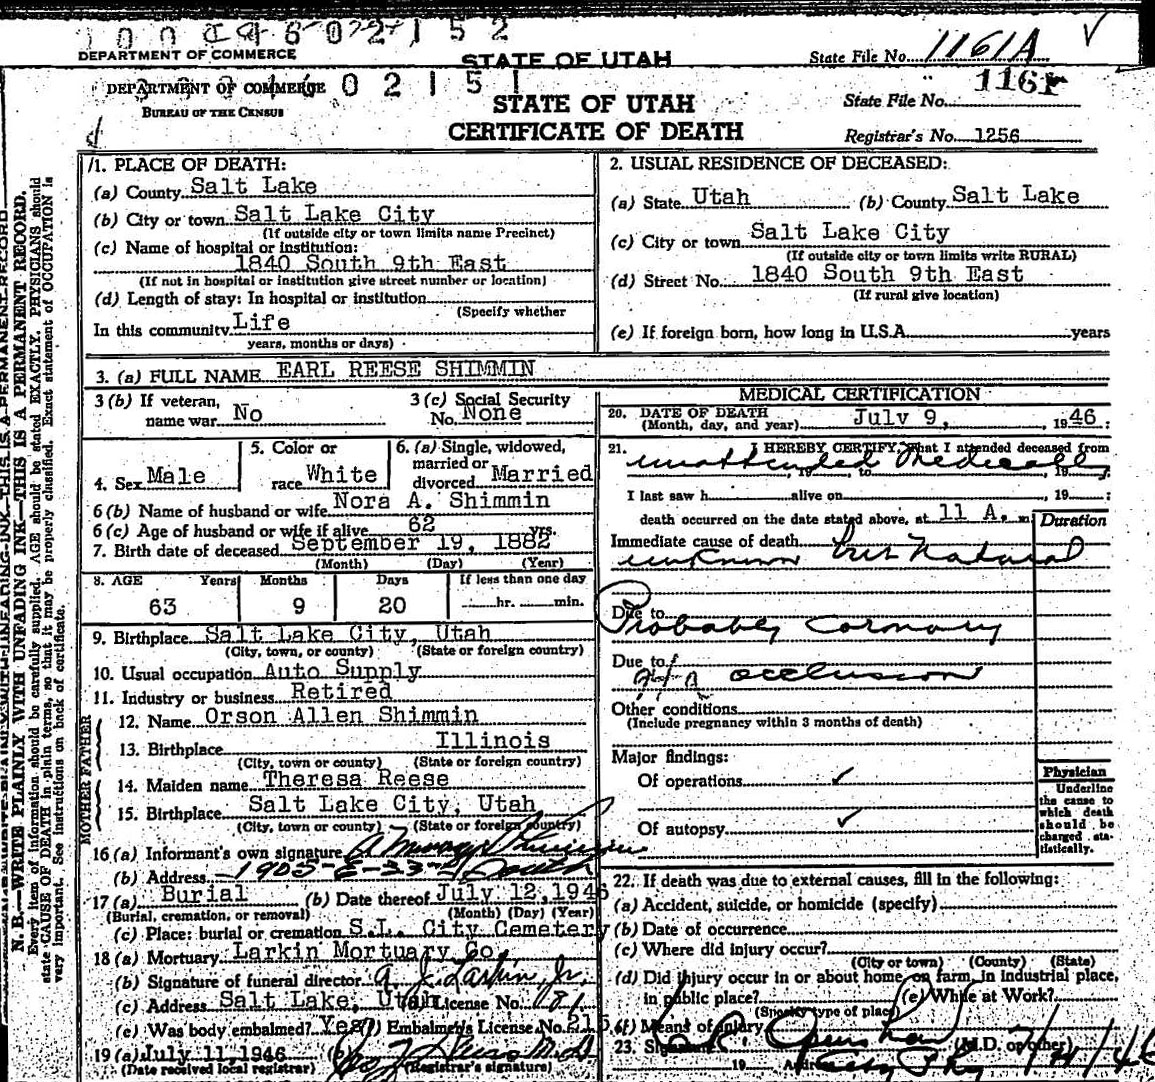 DEPARTMENT OF COMMERCE
STATE OF UTAH
State File No. 1161A
DEPARTMENT OF COMMERCE 02151
BUREAU OF THE CENSUS
STATE OF UTAH
CERTIFICATE OF DEATH
State File No. 1161
Registrar's No. 1256
N. B.—WRITE PLAINLY WITH UNFADING INK—THIS IS A PERMANENT RECORD.
Every item of information should be carefully supplied. AGE should be stated EXACTLY. PHYSICIANS should
state CAUSE OF DEATH in plain terms, so that it may be properly classified. Exact statement of OCCUPATION is
very important. See instructions on back of certificate.
1. PLACE OF DEATH:
(a) County Salt Lake
(b) City or town Salt Lake City
(If outside city or town limits name Precinct)
(c) Name of hospital or institution:
1840 South 9th East
(If not in hospital or institution give street number or location)
(d) Length of stay: In hospital or institution
(Specify whether
In this community Life
years, months or days)
2. USUAL RESIDENCE OF DECEASED:
(a) State Utah (b) County Salt Lake
(c) City or town Salt Lake City
(If outside city or town limits write RURAL)
(d) Street No. 1840 South 9th East
(If rural give location)
(e) If foreign born, how long in U.S.A. years
3. (a) FULL NAME EARL REESE SHIMMIN
3 (b) If veteran,
name war No
3 (c) Social Security
No. None
4. Sex Male
5. Color or
race White
6. (a) Single, widowed,
married or
divorced Married
6 (b) Name of husband or wife Nora A. Shimmin
6 (c) Age of husband or wife if alive 62 yrs.
7. Birth date of deceased September 19, 1882
(Month) (Day) (Year)
8. AGE Years Months Days If less than one day
63 9 20 hr. min.
9. Birthplace Salt Lake City, Utah
(City, town, or county) (State or foreign country)
10. Usual occupation Auto Supply
11. Industry or business Retired
FATHER
12. Name Orson Allen Shimmin
13. Birthplace Illinois
(City, town or county) (State or foreign country)
MOTHER
14. Maiden name Theresa Reese
15. Birthplace Salt Lake City, Utah
(City, town or county) (State or foreign country)
16 (a) Informant's own signature
(b) Address
17 (a) Burial (b) Date thereof July 12, 1946
(Burial, cremation, or removal) (Month) (Day) (Year)
(c) Place: burial or cremation S.L. City Cemetery
18 (a) Mortuary Larkin Mortuary Co.
(b) Signature of funeral director A. J. Larkin, Jr.
(c) Address Salt Lake, Utah License No. 181
(e) Was body embalmed? Yes (f) Embalmer's License No. 215
19 (a) July 11, 1946 (b)
(Date received local registrar) (Registrar's signature)
MEDICAL CERTIFICATION
20. DATE OF DEATH
(Month, day, and year) July 9, 1946
21. I HEREBY CERTIFY, That I attended deceased from
unattended Medically
, 19 , to , 19 ;
I last saw h alive on , 19 ;
death occurred on the date stated above, at 11 A. m.
Duration
Immediate cause of death
unknown but Natural
Due to
Probably coronary
Due to
occlusion
Other conditions
(Include pregnancy within 3 months of death)
Major findings:
Of operations ✓
Of autopsy ✓
Physician
Underline
the cause to
which death
should be
charged sta-
tistically.
22. If death was due to external causes, fill in the following:
(a) Accident, suicide, or homicide (specify)
(b) Date of occurrence
(c) Where did injury occur?
(City or town) (County) (State)
(d) Did injury occur in or about home, on farm, in industrial place,
in public place? (e) While at Work?
(Specify type of place)
(f) Means of injury
23. Signature (M.D. or other)
19 Address 7/11/46